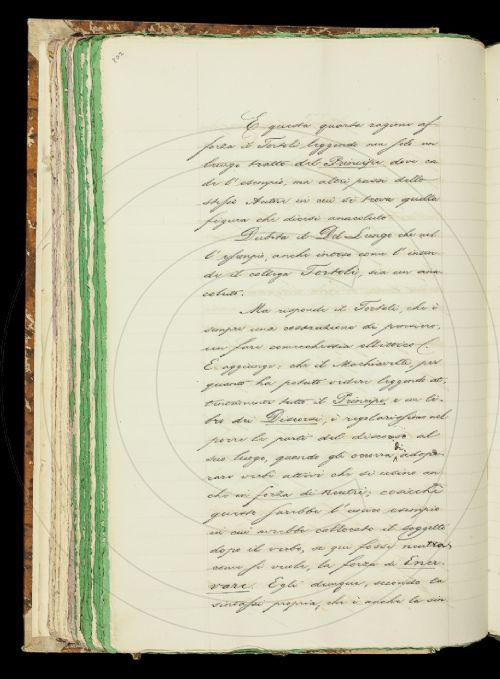 202
E questa quarta ragione af-
forza il Tortoli leggendo non solo un
lungo tratto del Principe dove ca-
de l'esempio, ma altri passi dello
stesso Autore in cui si trova quella
figura che dicesi anacoluto
Dubita il Del Lungo che nel-
l'esempio, anche inteso come l'inten-
de il collega Tortoli, sia un ana-
coluto.
Ma risponde il Tortoli, che è
sempre una costruzione di pensiero,
un fare comecchessia ellittico (.
E aggiunge, che il Machiavelli, per
quanto ha potuto vedere leggendo at-
tentamente tutto il Principe e un li-
bro dei Discorsi, è regolarissimo nel
porre le parti del discorso al
suo luogo, quando gli occorra di adope-
rare verbi attivi che si usino an-
che in forza di neutri; cosicchè
questo sarebbe l'unico esempio
in cui avrebbe collocato il soggetto
dopo il verbo, se qui fosse neutro,
come si vuole, la forza di Ener-
vare. Egli dunque, secondo la
sintassi propria, che è anche la sin-